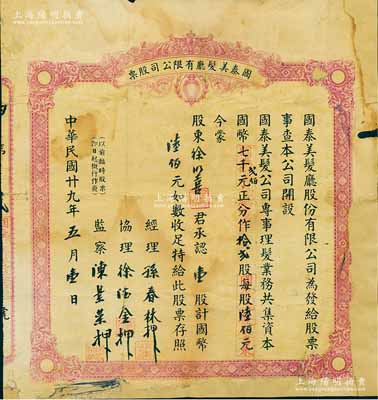 上海陽明拍賣
國泰美髮廳有限公司股票
國泰美髮廳股份有限公司為發給股票
事查本公司開設
國泰美髮公司專事理髮業務共集資本
國幣七千弍佰元正分作拾弍股每股陸佰元
今蒙
股東徐 喜君承認壹股計國幣
陸佰元如數收足特給此股票存照
經理孫春林押
協理徐 金押
監察陳 榮押
(以前臨時股票
即日起概行作廢)
中華民國廿九年五月壹日
上海陽明拍賣